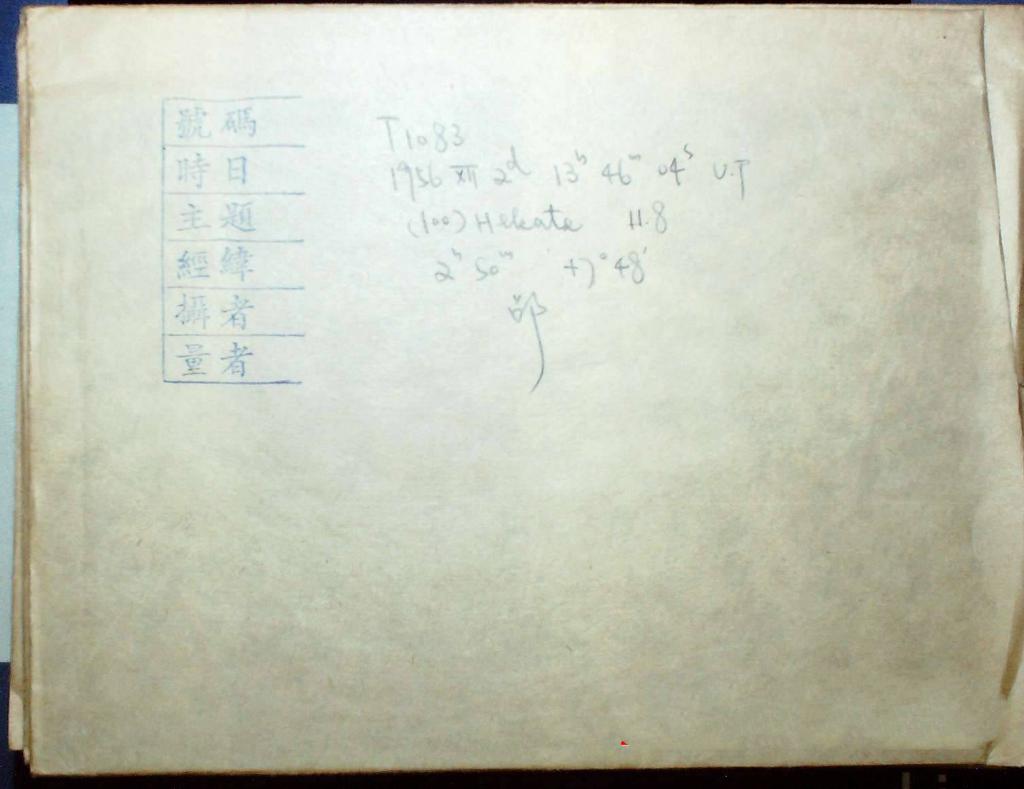 號碼 T1083
時日 1956 XII 2d 13h 46m 04s U.T
主題 (100) Hekate 11.8
經緯 2h 50m +7° 48'
攝者 邵
量者